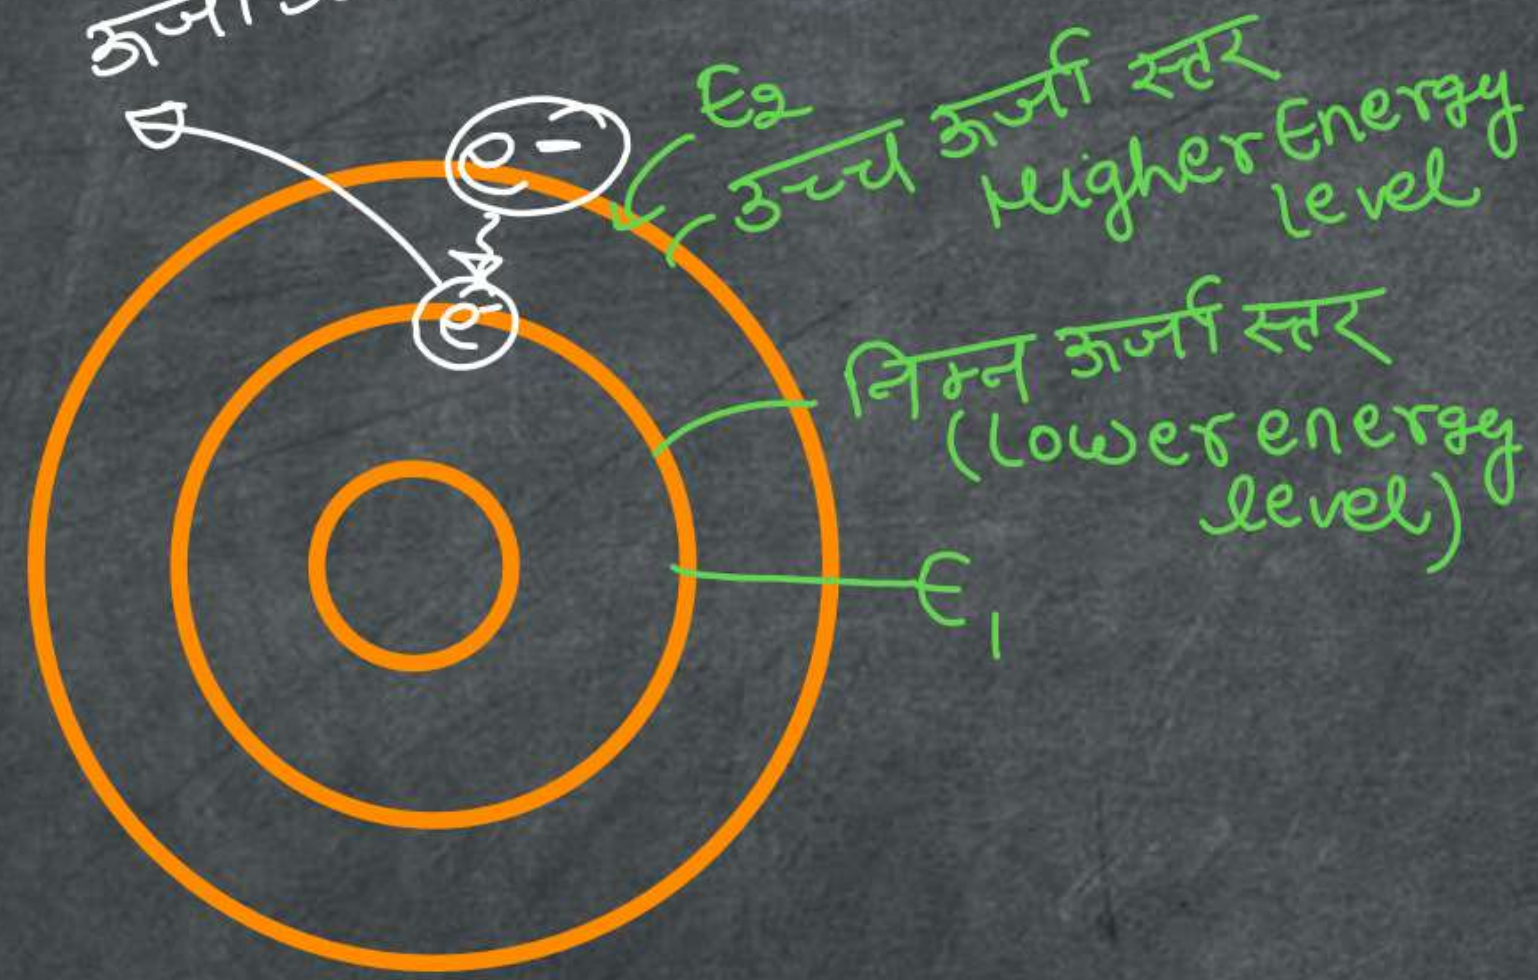 ऊर्जा
e-
E2
उच्च ऊर्जा स्तर
Higher Energy
level
e-
निम्न ऊर्जा स्तर
(Lower energy
level)
E1